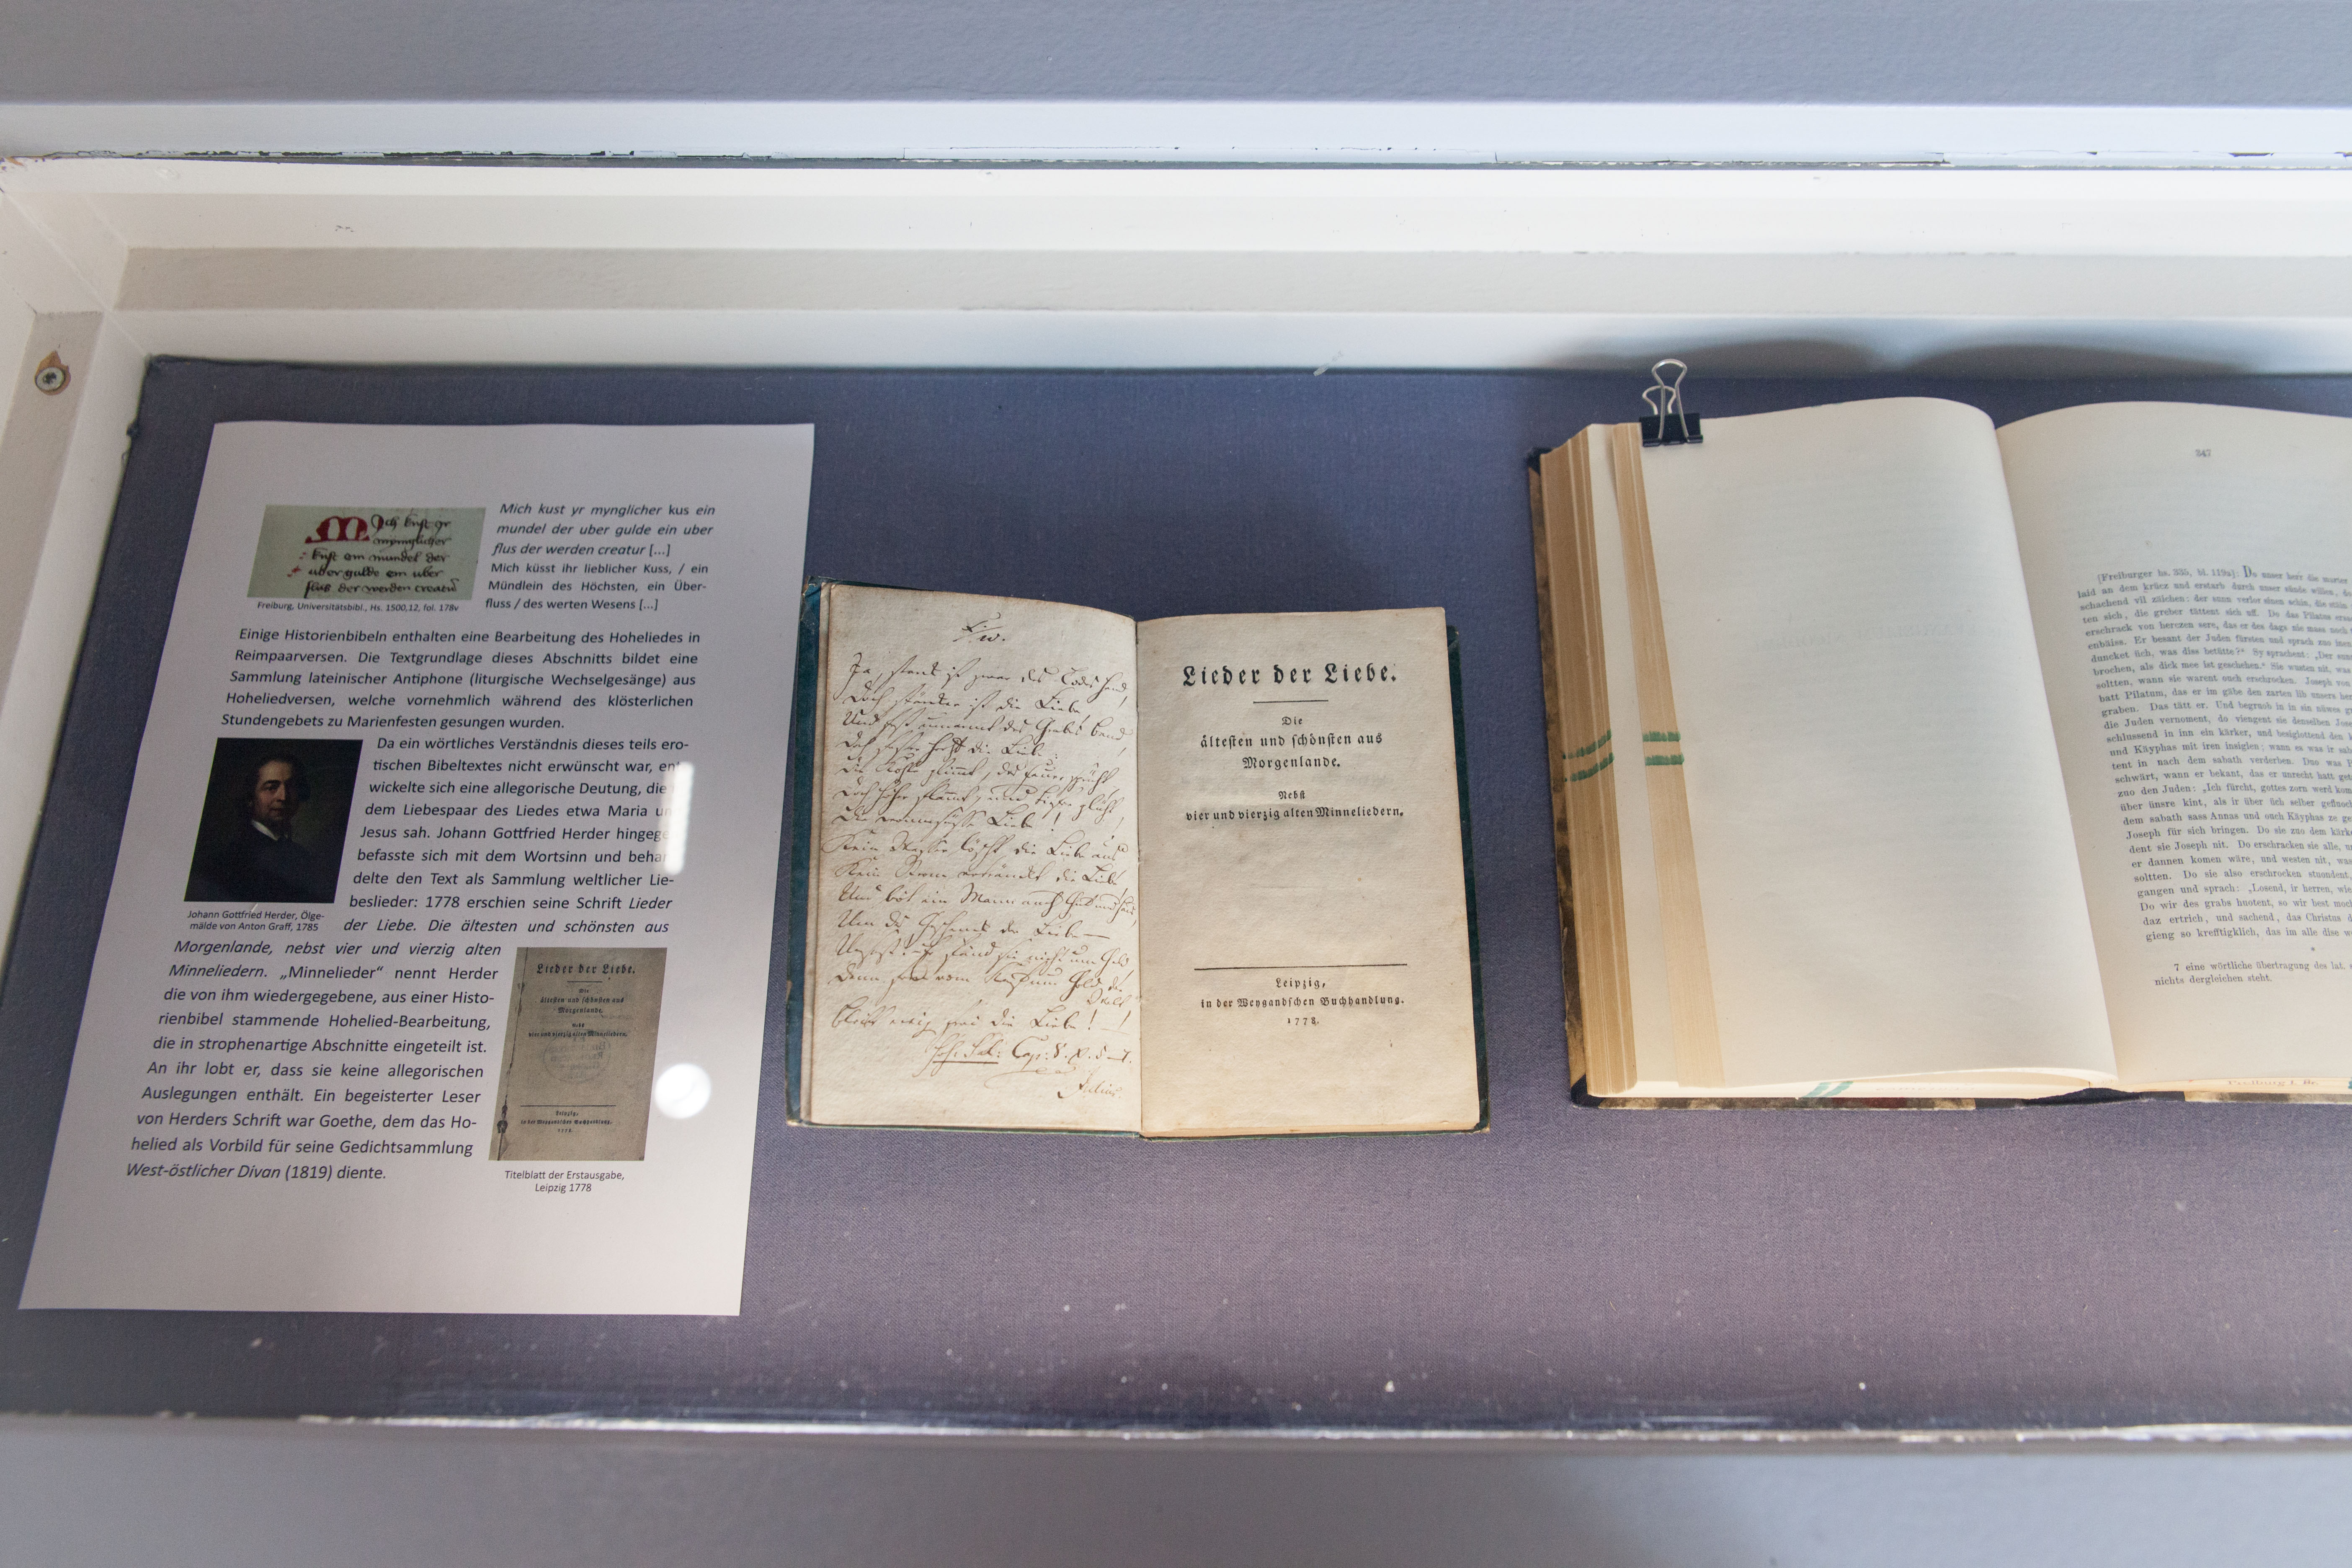 Mich kust yr
mynglicher
kust ein mundel der
uber gulde ein uber
flus der werden creatu
Freiburg, Universitätsbibl., Hs. 1500,12, fol. 178v
Mich kust yr mynglicher kus ein
mundel der uber gulde ein uber
flus der werden creatur [...]
Mich küsst ihr lieblicher Kuss, / ein
Mündlein des Höchsten, ein Über-
fluss / des werten Wesens [...]
Einige Historienbibeln enthalten eine Bearbeitung des Hoheliedes in
Reimpaarversen. Die Textgrundlage dieses Abschnitts bildet eine
Sammlung lateinischer Antiphone (liturgische Wechselgesänge) aus
Hoheliedversen, welche vornehmlich während des klösterlichen
Stundengebets zu Marienfesten gesungen wurden.
Da ein wörtliches Verständnis dieses teils ero-
tischen Bibeltextes nicht erwünscht war, ent
wickelte sich eine allegorische Deutung, die
dem Liebespaar des Liedes etwa Maria un
Jesus sah. Johann Gottfried Herder hingege
befasste sich mit dem Wortsinn und behan
delte den Text als Sammlung weltlicher Lie-
beslieder: 1778 erschien seine Schrift Lieder
der Liebe. Die ältesten und schönsten aus
Johann Gottfried Herder, Ölge-
mälde von Anton Graff, 1785
Morgenlande, nebst vier und vierzig alten
Minneliedern. „Minnelieder“ nennt Herder
die von ihm wiedergegebene, aus einer Histo-
rienbibel stammende Hohelied-Bearbeitung,
die in strophenartige Abschnitte eingeteilt ist.
An ihr lobt er, dass sie keine allegorischen
Auslegungen enthält. Ein begeisterter Leser
von Herders Schrift war Goethe, dem das Ho-
helied als Vorbild für seine Gedichtsammlung
West-östlicher Divan (1819) diente.
Lieder der Liebe.
Die
ältesten und schönsten aus
Morgenlande.
Nebst
vier und vierzig alten Minneliedern.
Leipzig,
in der Weygandschen Buchhandlung.
1778.
Titelblatt der Erstausgabe,
Leipzig 1778
Ja, stark ist zwar des Todes Hand,
Doch stärker ist die Liebe
Und fest umspannt des Grabes Band,
Doch fester hält die Liebe
Kein Wasser löscht die Liebe aus
Kein Strom ertränket die Liebe
Um des Geschenk der Liebe—
bleibt ewig frei die Liebe! —!
Cap: 8.
Julius
Lieder der Liebe.
Die
ältesten und schönsten aus
Morgenlande.
Nebst
vier und vierzig alten Minneliedern.
Leipzig,
in der Weygandschen Buchhandlung.
1778.
347
[Freiburger hs. 335, bl. 119a]: Do unser herr die marter
laid an dem krücz und erstarb durch unser sünde willen, do
schachend vil zaichen: der sunn verlor sinen schin, die stain
ten sich, die greber tättent sich uff. Do das Pilatus ersach
erschrack von herczen sere, das er des dags nie mass noch
enbaiss. Er besant der Juden fürsten und sprach zuo inen
duncket üch, was diss betütte?“ Sy sprachent: „Der sunn
brochen, als dick mee ist geschehen.“ Sie wusten nit, was
soltten, wann sie warent ouch erschrocken. Joseph von
batt Pilatum, das er im gäbe den zarten lib unsers
graben. Das tätt er. Und begruob in in ein nüwes
die Juden vernoment, do viengent sie denselben Jose
schlussend in inn ein kärker, und besiglottend den
und Käyphas mit iren insiglen; wann es was ir
tent in nach dem sabath verderben. Duo was
schwärt, wann er bekant, das er unrecht hatt
zuo den Juden: „Ich fürcht, gottes zorn werd kom
über ünsre kint, als ir über üch selber gefluoch
dem sabath sass Annas und ouch Käyphas ze
Joseph für sich bringen. Do sie zuo dem kärk
dent sie Joseph nit. Do erschracken sie alle,
er dannen komen wäre, und westen nit, was
soltten. Do sie also erschrocken stuondent,
gangen und sprach: „Losend, ir herren, wie
Do wir des grabs huotent, so wir best moch
daz ertrich, und sachend, das Christus
gieng so krefftigklich, das im alle dise
*
7 eine wörtliche übertragung des lat.
nichts dergleichen steht.
Freiburg i. Br.